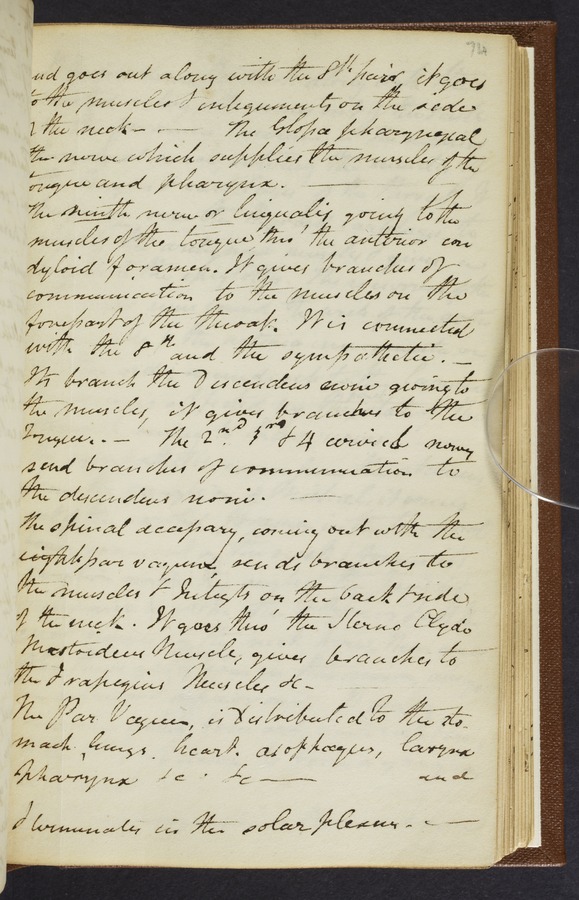 and goes out along with the 8th pair it goes
to the muscles & integuments on the side
of the neck — — The Glosso pharyngeal
the nerve which supplies the muscles of the
tongue and pharynx. —
The ninth nerve or lingualis going to the
muscles of the tongue thro' the anterior con
dyloid foramen. It gives branches of
communication to the muscles on the
forepart of the throat. It is connected
with the 8th and the sympathetic. —
Its branch the Descendens noni going to
the muscles, it gives branches to the
Tongue. — The 2nd. 3rd & 4 cervical nerves
send branches of communication to
the descendens noni. —
The spinal accessary, coming out with the
eighth par vagum, sends branches to
the muscles & Integts on the back & side
of the neck. It goes thro' the Sterno Clydo
Mastoideus Muscle, gives branches to
the Trapezius Muscles &c —
The Par Vagum, is Distributed to the sto-
mach lungs, heart. œsophagus, larynx
pharynx &c. &c — and
terminates in the solar plexus. —